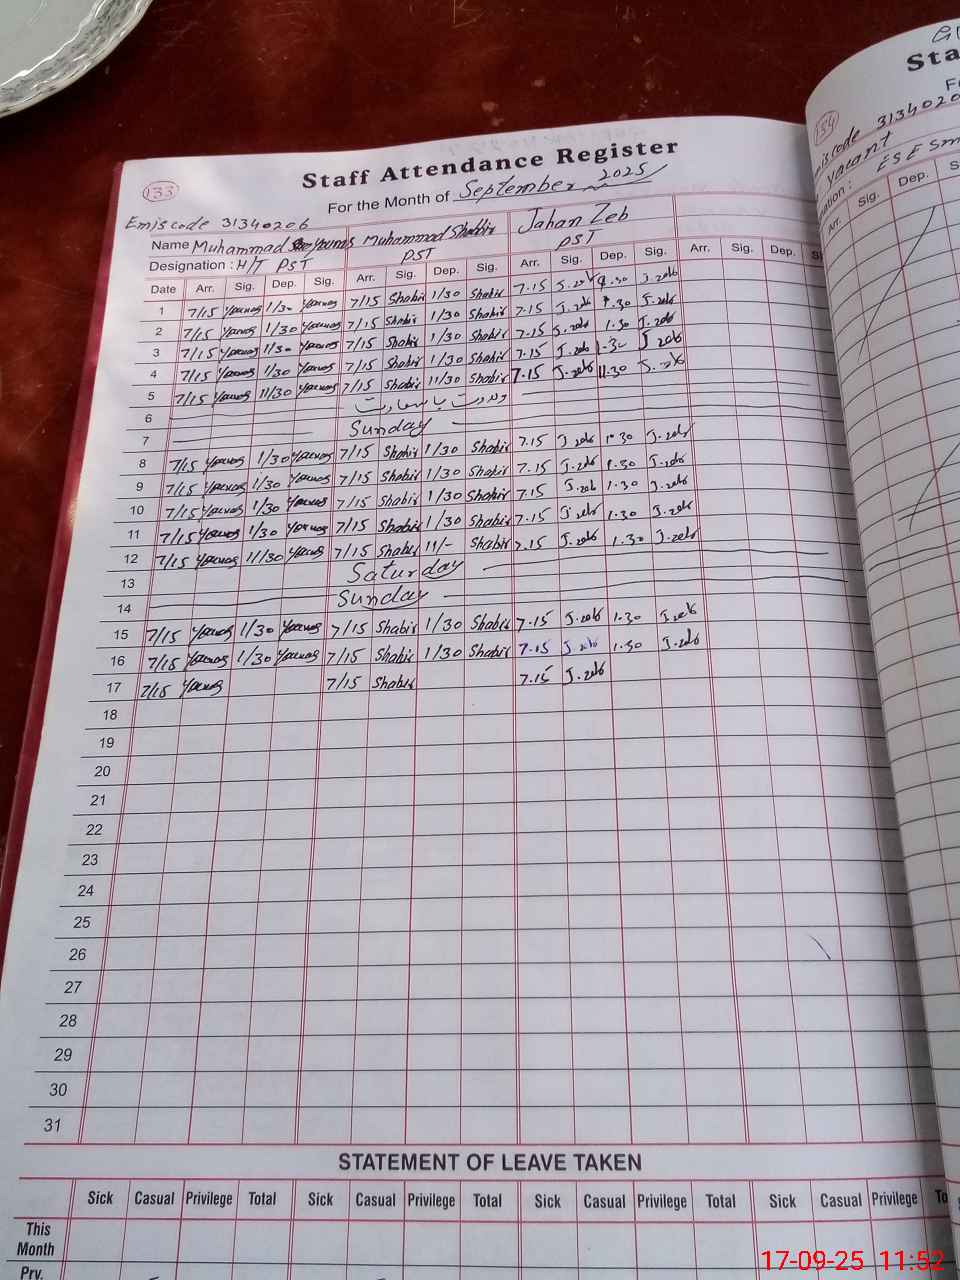 133
Staff Attendance Register
For the Month of September 2025
Emiscode 31340206
Name Muhammad Younas Muhammad Shabbir Jahan Zeb
Designation : H/T PST PST PST
Date Arr. Sig. Dep. Sig. Arr. Sig. Dep. Sig. Arr. Sig. Dep. Sig. Arr. Sig. Dep. S
1 7/15 Younas 1/30 Younas 7/15 Shabir 1/30 Shabir 7.15 J.zeb 1.30 J.zeb
2 7/15 Younas 1/30 Younas 7/15 Shabir 1/30 Shabir 7.15 J.zeb 1.30 J.zeb
3 7/15 Younas 1/30 Younas 7/15 Shabir 1/30 Shabir 7.15 J.zeb 1.30 J.zeb
4 7/15 Younas 1/30 Younas 7/15 Shabir 1/30 Shabir 7.15 J.zeb 1.30 J.zeb
5 7/15 Younas 11/30 Younas 7/15 Shabir 11/30 Shabir 7.15 J.zeb 11.30 J.zeb
6 ولادت با سعادت
7 Sunday
8 7/15 Younas 1/30 Younas 7/15 Shabir 1/30 Shabir 7.15 J.zeb 1.30 J.zeb
9 7/15 Younas 1/30 Younas 7/15 Shabir 1/30 Shabir 7.15 J.zeb 1.30 J.zeb
10 7/15 Younas 1/30 Younas 7/15 Shabir 1/30 Shabir 7.15 J.zeb 1.30 J.zeb
11 7/15 Younas 1/30 Younas 7/15 Shabir 1/30 Shabir 7.15 J.zeb 1.30 J.zeb
12 7/15 Younas 11/30 Younas 7/15 Shabir 11/- Shabir 7.15 J.zeb 1.30 J.zeb
13 Saturday
14 Sunday
15 7/15 Younas 1/30 Younas 7/15 Shabir 1/30 Shabir 7.15 J.zeb 1.30 J.zeb
16 7/15 Younas 1/30 Younas 7/15 Shabir 1/30 Shabir 7.15 J.zeb 1.30 J.zeb
17 7/15 Younas 7/15 Shabir 7.15 J.zeb
18
19
20
21
22
23
24
25
26
27
28
29
30
31
STATEMENT OF LEAVE TAKEN
Sick Casual Privilege Total Sick Casual Privilege Total Sick Casual Privilege Total Sick Casual Privilege To
This Month
Prv.
134
Sta
Fo
mis code 3134020
Vacant
nation : ESE
Arr. Sig. Dep. S
17-09-25 11:52